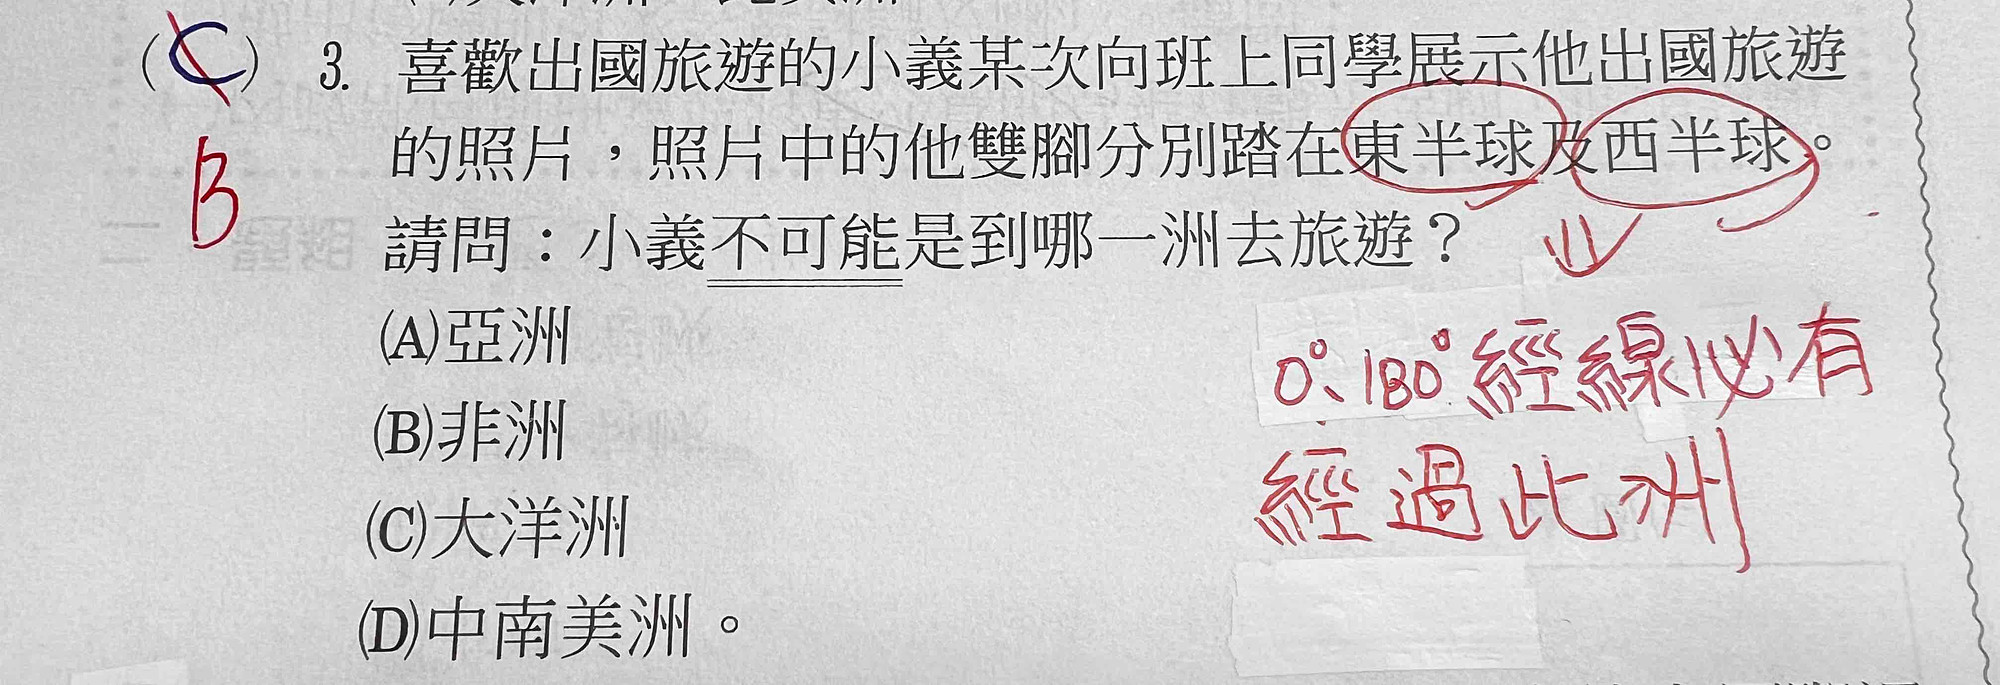 (C) 3. 喜歡出國旅遊的小義某次向班上同學展示他出國旅遊
B 的照片，照片中的他雙腳分別踏在東半球及西半球。
請問：小義不可能是到哪一洲去旅遊？
(A)亞洲
(B)非洲
(C)大洋洲
(D)中南美洲。
0°、180°經線必有
經過此洲